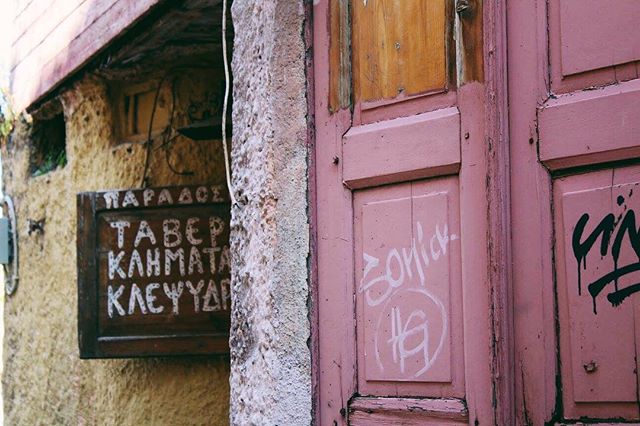 ΠΑΡΑΔΟΣ
ΤΑΒΕΡ
ΚΛΗΜΑΤΑ
ΚΛΕΨΥΔΡ
sonick.
HG